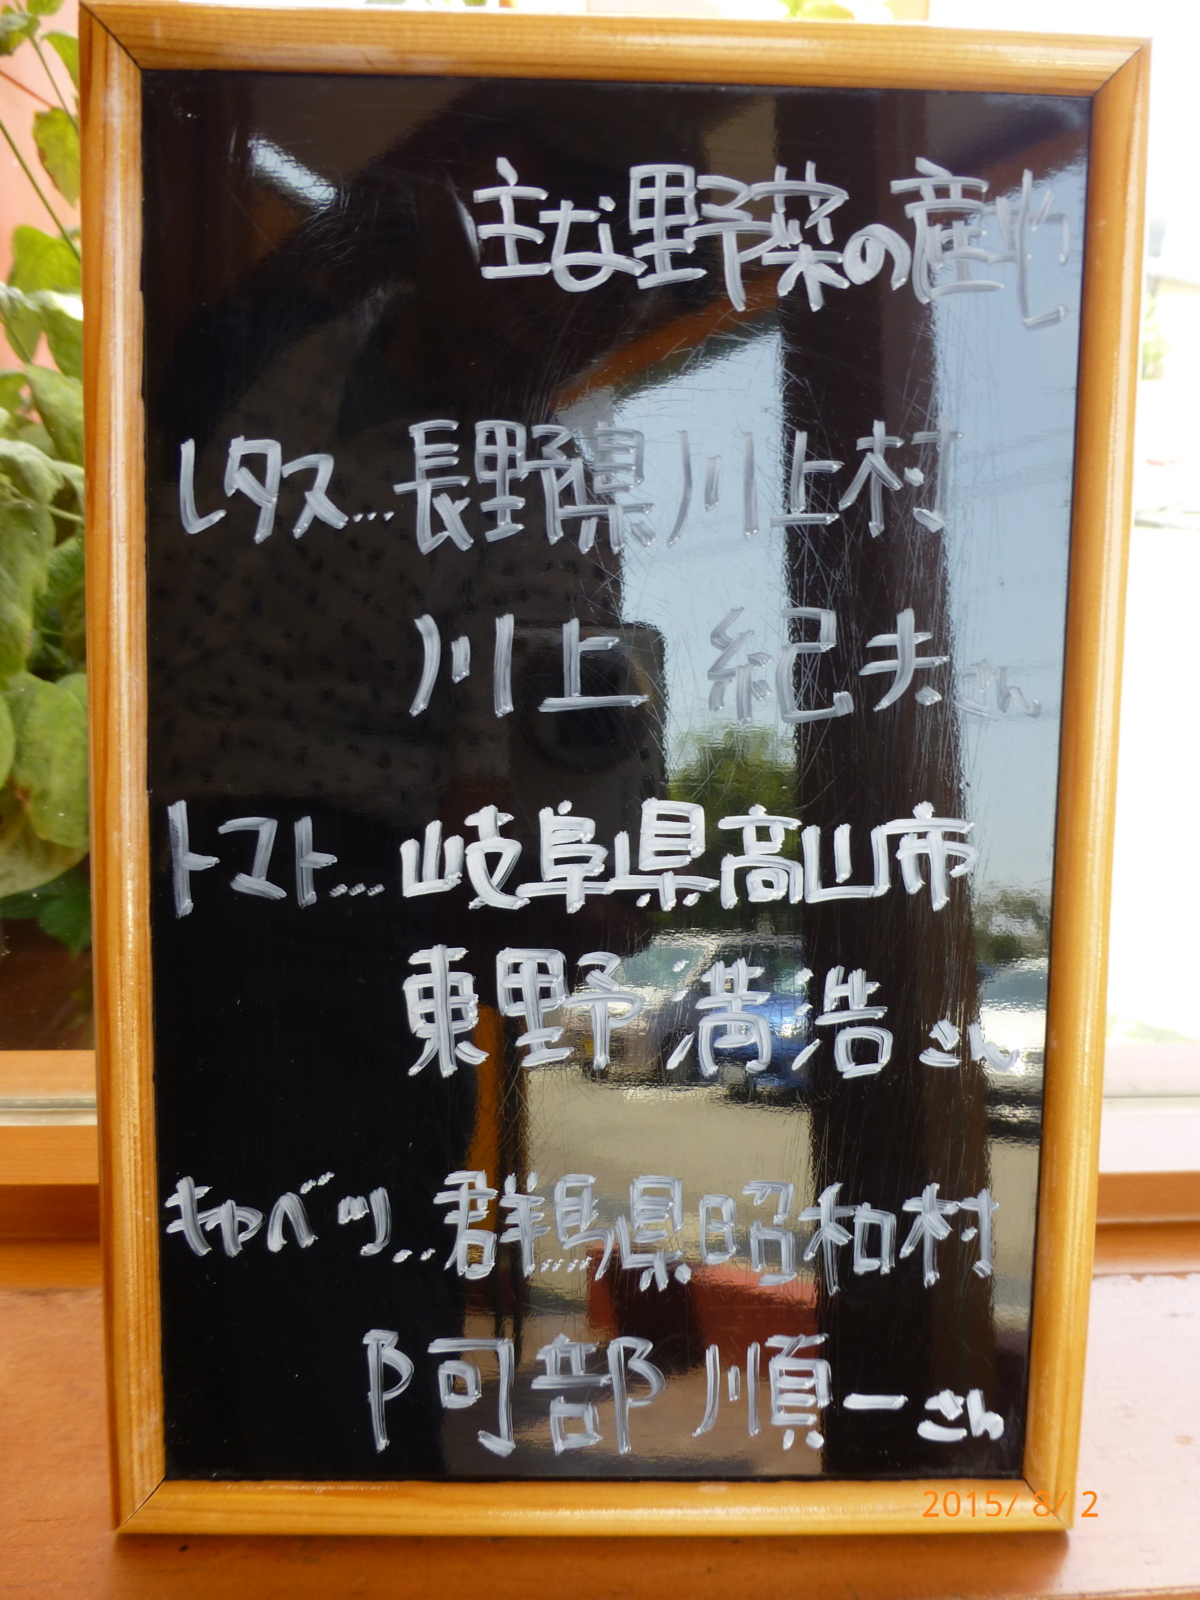 主な野菜の産地
レタス…長野県川上村
川上 紀夫さん
トマト…岐阜県高山市
東野 満浩さん
キャベツ…群馬県昭和村
阿部 順一さん
2015/ 8/ 2